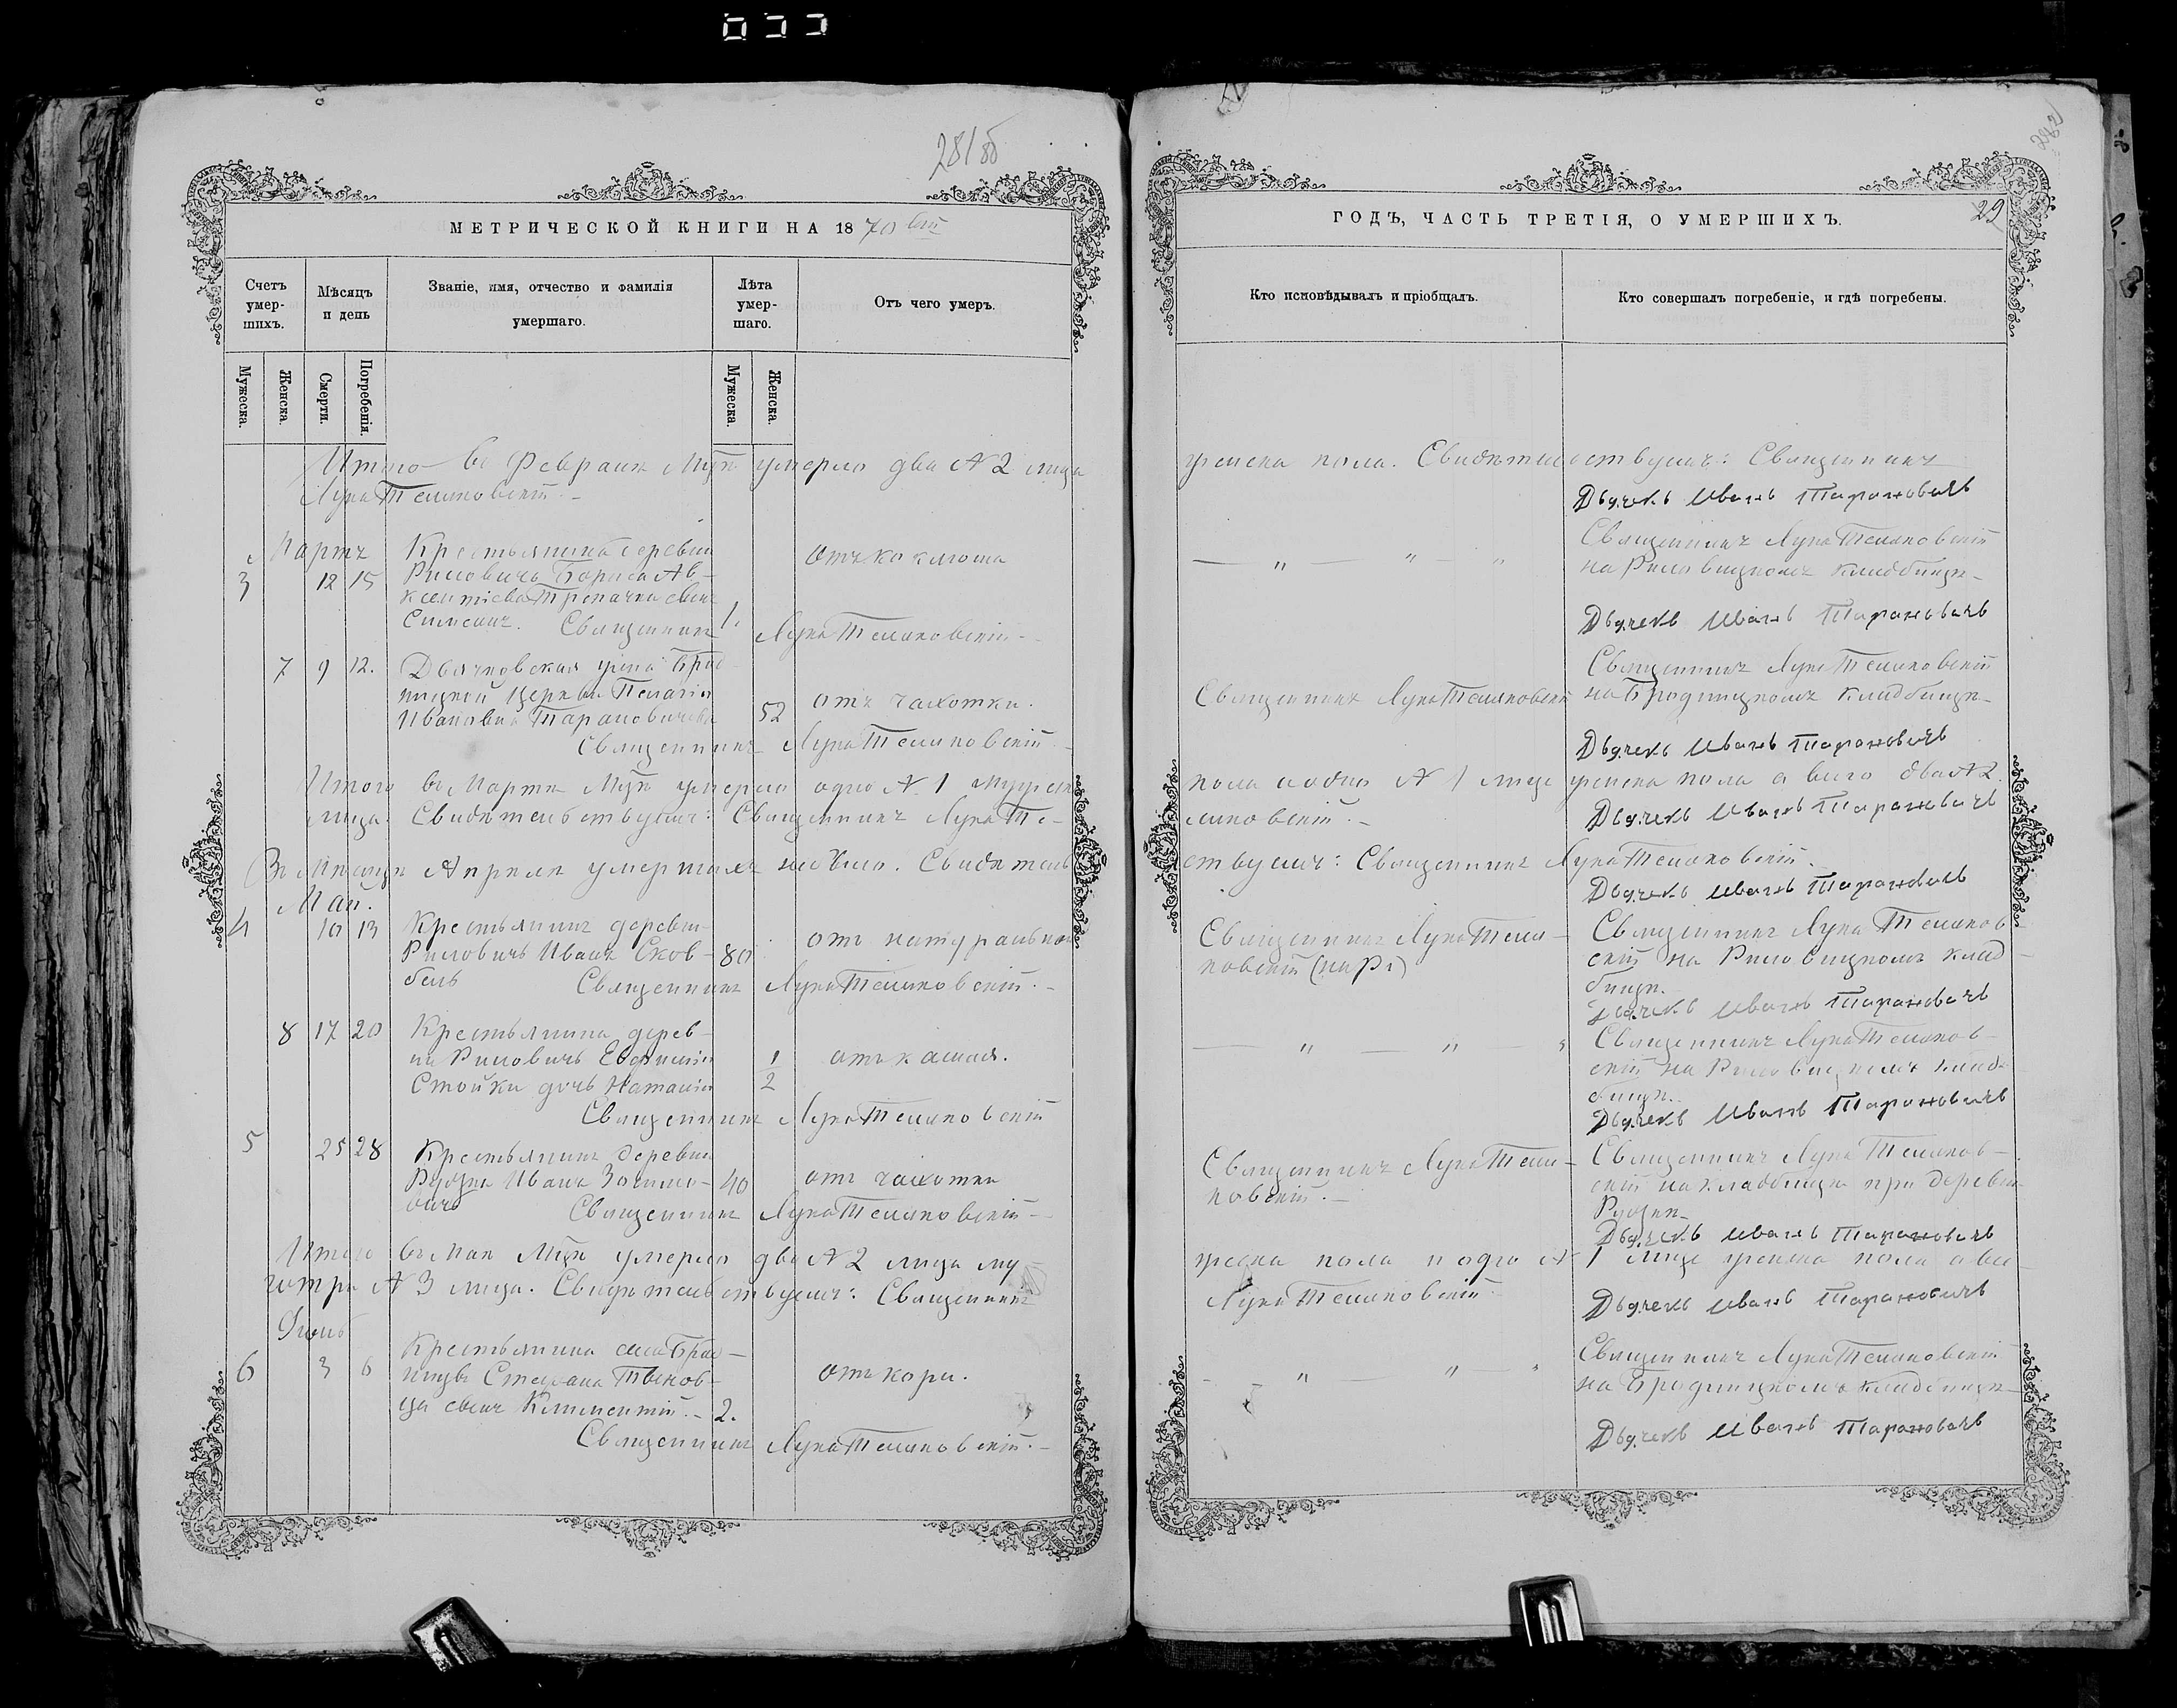 281 об
МЕТРИЧЕСКОЙ КНИГИ НА 1870 ый
Счетъ умер-шихъ.
Мѣсяцъ и день
Званіе, имя, отчество и фамилія умершаго.
Лѣта умер-шаго.
Отъ чего умеръ.
Мужеска.
Женска.
Смерти.
Погребенія.
Мужеска.
Женска.
Итого въ Февралѣ Мцѣ умерло два № 2 лица
Лука Теляковскій.
Мартъ
3 12 15
Крестьянина деревни
Риловичъ Бориса Ав-
ксентіева Трепачки сынъ
Симеонъ. 1.
отъ коклюша
Священникъ Лука Теляковскій
7 9 12.
Дьячковская жена Брод-
ницкой Церкви Пелагія
Ивановна Тарановичева
52
отъ чахотки.
Священникъ Лука Теляковскій
Итого въ Мартѣ Мцѣ умерло одно № 1 мужеск
лица. Свидѣтельствуемъ: Священникъ Лука Те-
Въ Мѣсяцѣ Апрѣлѣ умершихъ не было. Свидѣтель
Май.
4 10 13
Крестьянинъ деревни
Риловичъ Иванъ Сков-
бель
80
отъ натуральной
Священникъ Лука Теляковскій.
8 17 20
Крестьянина дерев-
ни Риловичъ
Стойки дочь Наталія
1/2
отъ кашля.
Священникъ Лука Теляковскій
5 25 28
Крестьянинъ деревни
Иванъ
40
отъ чахотки
Священникъ Лука Теляковскій
Итого въ Маѣ Мцѣ умерло два № 2 лица му
го три № 3 лица. Свидѣтельствуемъ: Священникъ
Іюнь
6 3 6
Крестьянина села Брод-
ницъ Стефана
сынъ Климентій. 2.
отъ кори.
Священникъ Лука Теляковскій.
282
29
ГОДЪ, ЧАСТЬ ТРЕТІЯ, О УМЕРШИХЪ.
Кто исповѣдывалъ и пріобщалъ.
Кто совершалъ погребеніе, и гдѣ погребены.
женска пола. Свидѣтельствуемъ: Священникъ
Дьячекъ Иванъ Тарановичъ
Священникъ Лука Теляковскій
на Риловицкомъ кладбищѣ
Дьячекъ Иванъ Тарановичъ
Священникъ Лука Теляковскій
Священникъ Лука Теляковскій
на Бродницкомъ кладбищѣ
Дьячекъ Иванъ Тарановичъ
пола и одно № 1 лице женска пола а всего два № 2.
ляковскій.
Дьячекъ Иванъ Тарановичъ
ствуемъ: Священникъ Лука Теляковскій.
Дьячекъ Иванъ Тарановичъ
Священникъ Лука Теля-
ковскій
Священникъ Лука Теляков-
скій на Риловицкомъ клад-
бищѣ.
Дьячекъ Иванъ Тарановичъ
Священникъ Лука Теляков-
скій на Риловицкомъ клад-
бищѣ.
Дьячекъ Иванъ Тарановичъ
Священникъ Лука Теля-
ковскій.
Священникъ Лука Теляков-
скій на кладбищѣ при деревни
Дьячекъ Иванъ Тарановичъ
жеска пола и одно № 1 лице женска пола а все-
Лука Теляковскій.
Дьячекъ Иванъ Тарановичъ
Священникъ Лука Теляковскій
на Бродницкомъ кладбищѣ
Дьячекъ Иванъ Тарановичъ